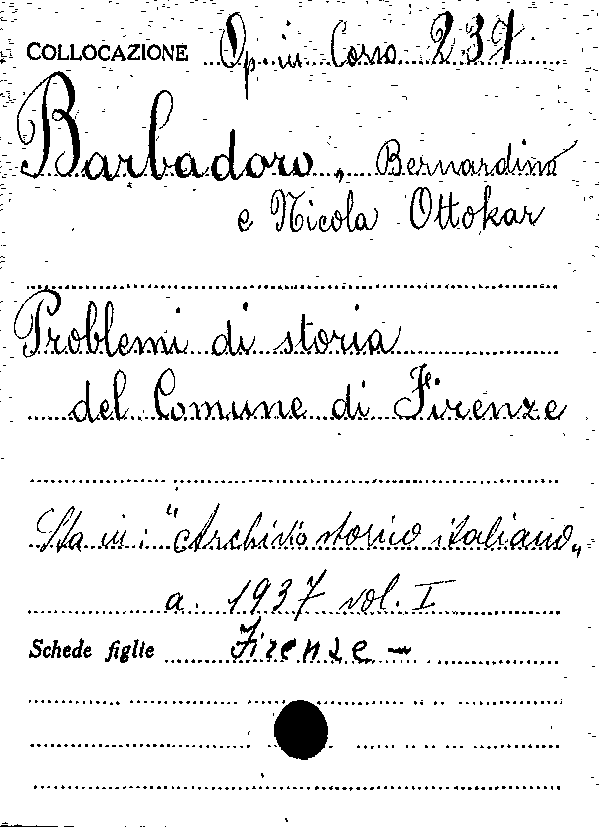 COLLOCAZIONE Op. in Corso 237
Barbadoro, Bernardino
e Nicola Ottokar
Problemi di storia
del Comune di Firenze
Sta in: "Archivio storico italiano„
a. 1937 vol. I
Schede figlie Firenze -